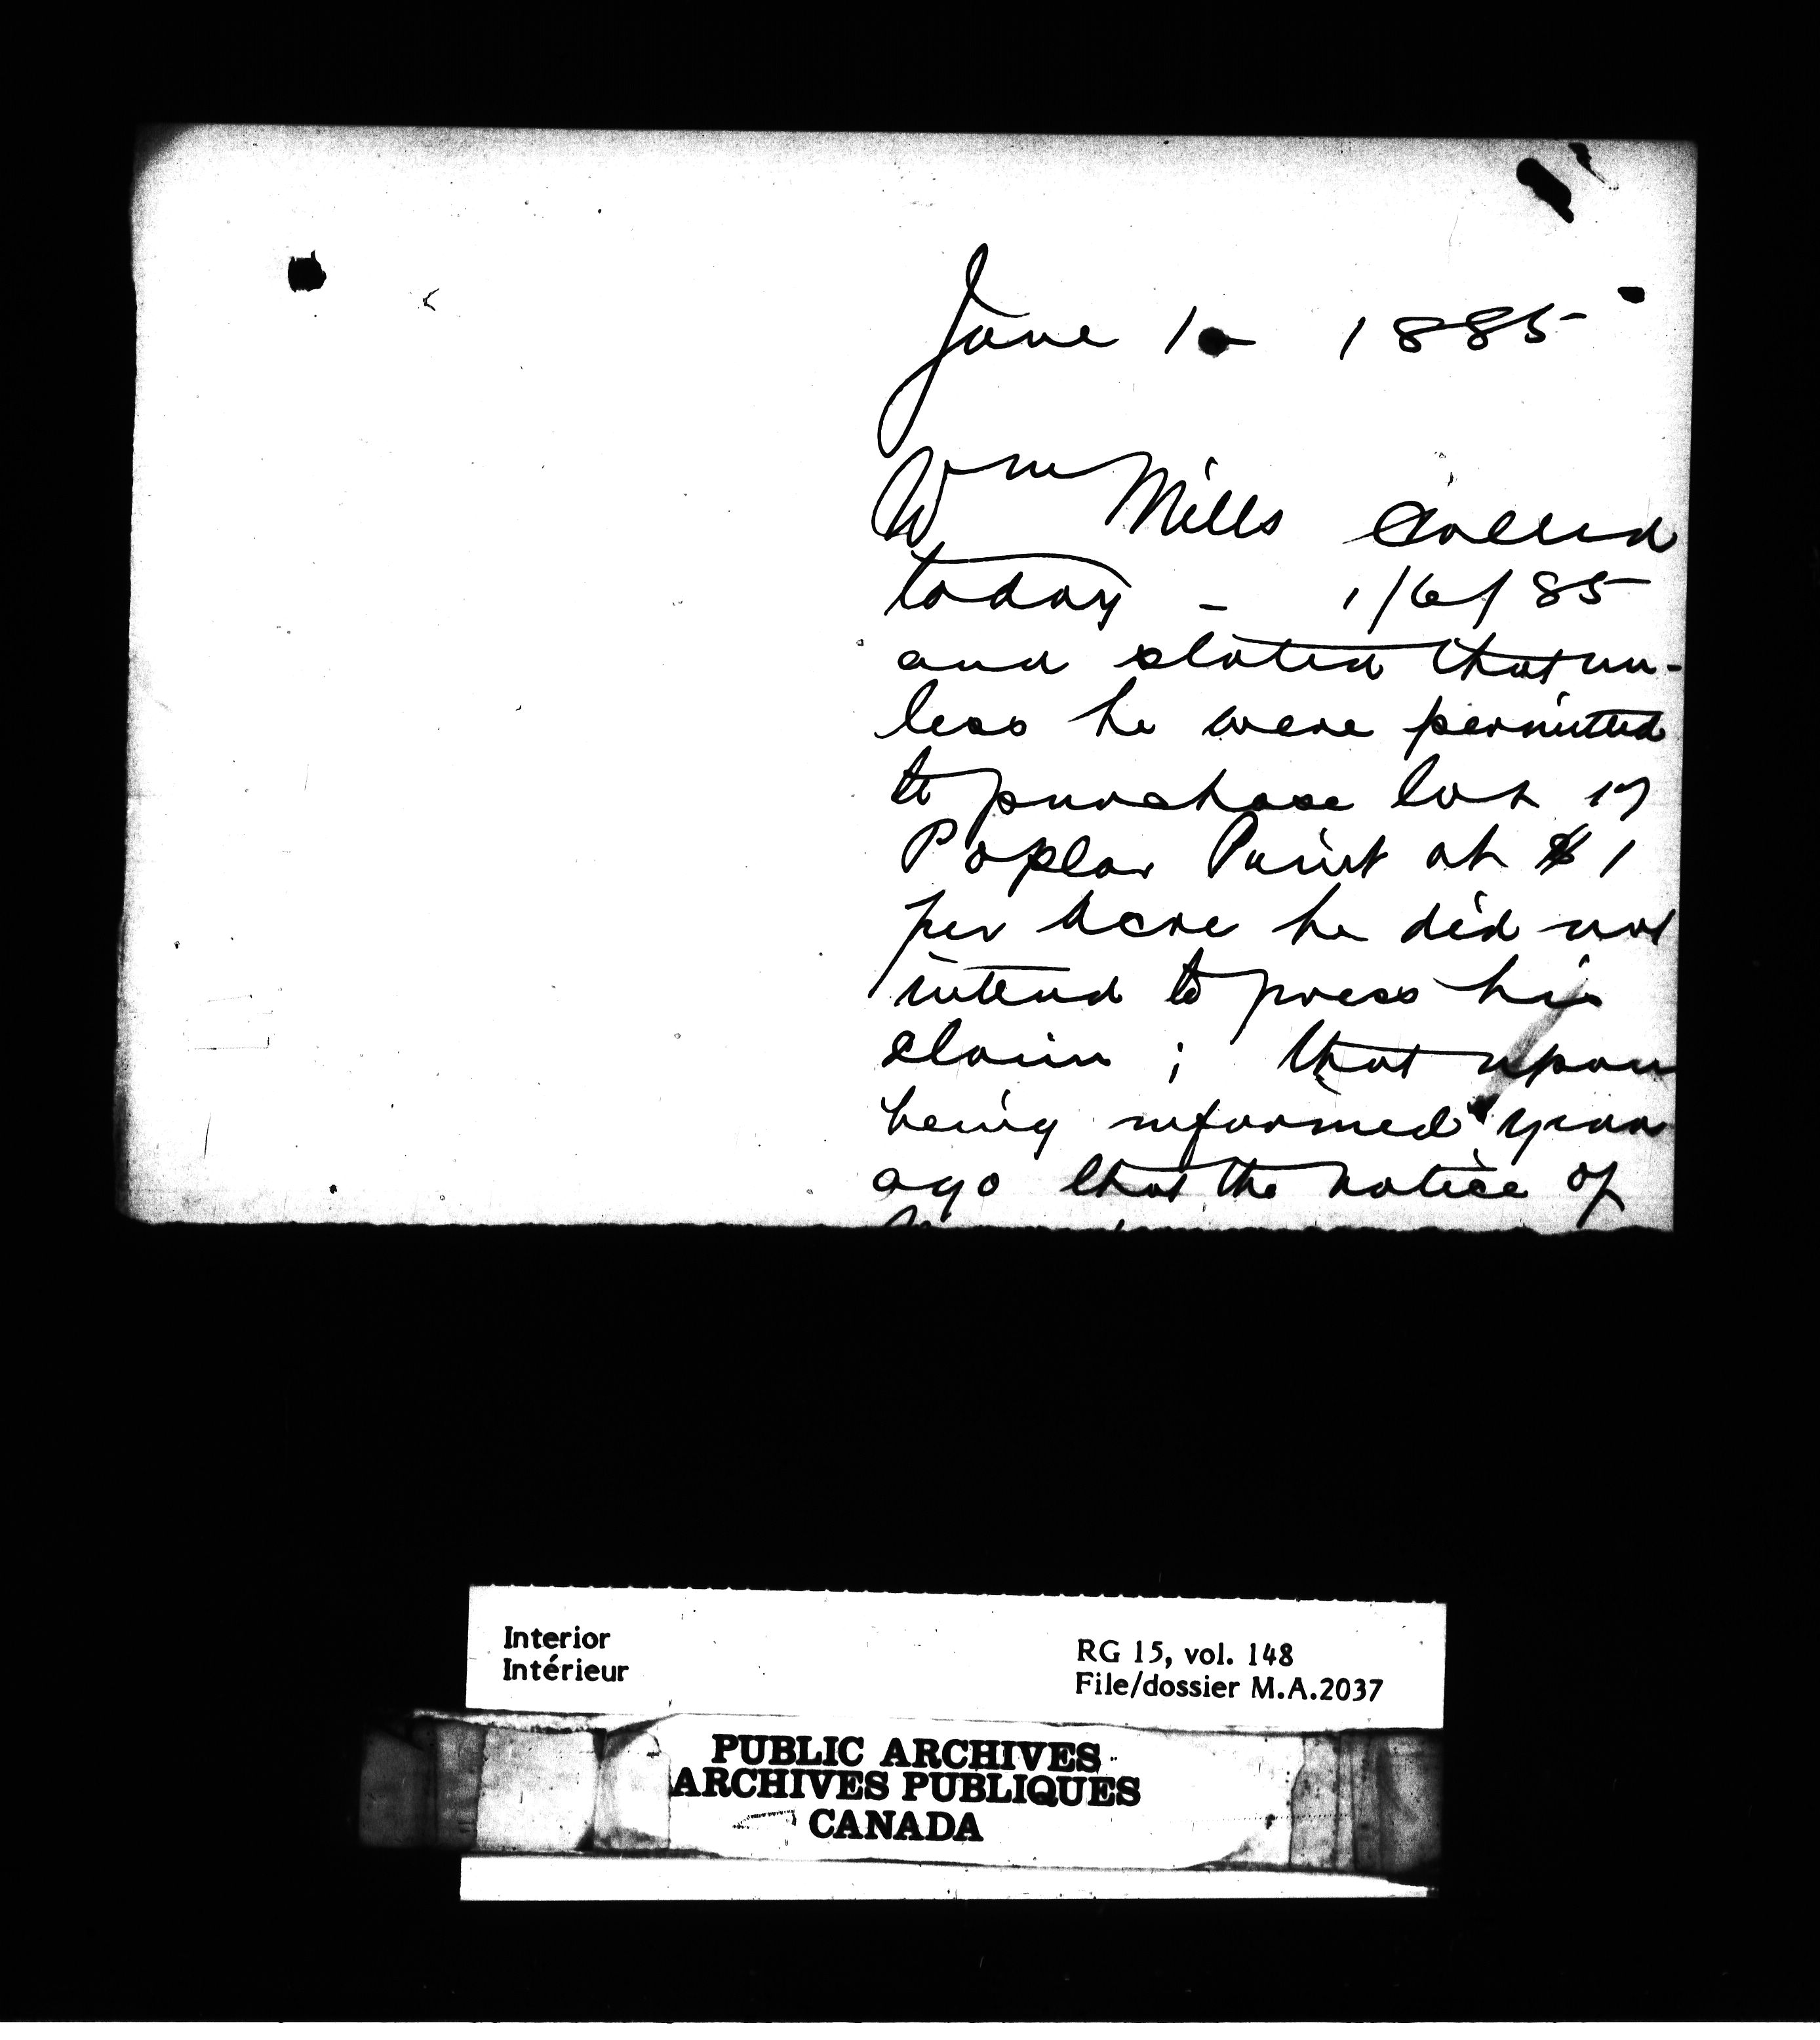 June 1 - 1885
Wm Mills called
today - 1/6/85
and stated that un-
less he were permitted
to purchase lot 17
Poplar Point at $1
per acre he did not
intend to press his
claim ; that upon
being informed years
ago that the notice of
Interior
Intérieur
RG 15, vol. 148
File/dossier M.A.2037
PUBLIC ARCHIVES
ARCHIVES PUBLIQUES
CANADA